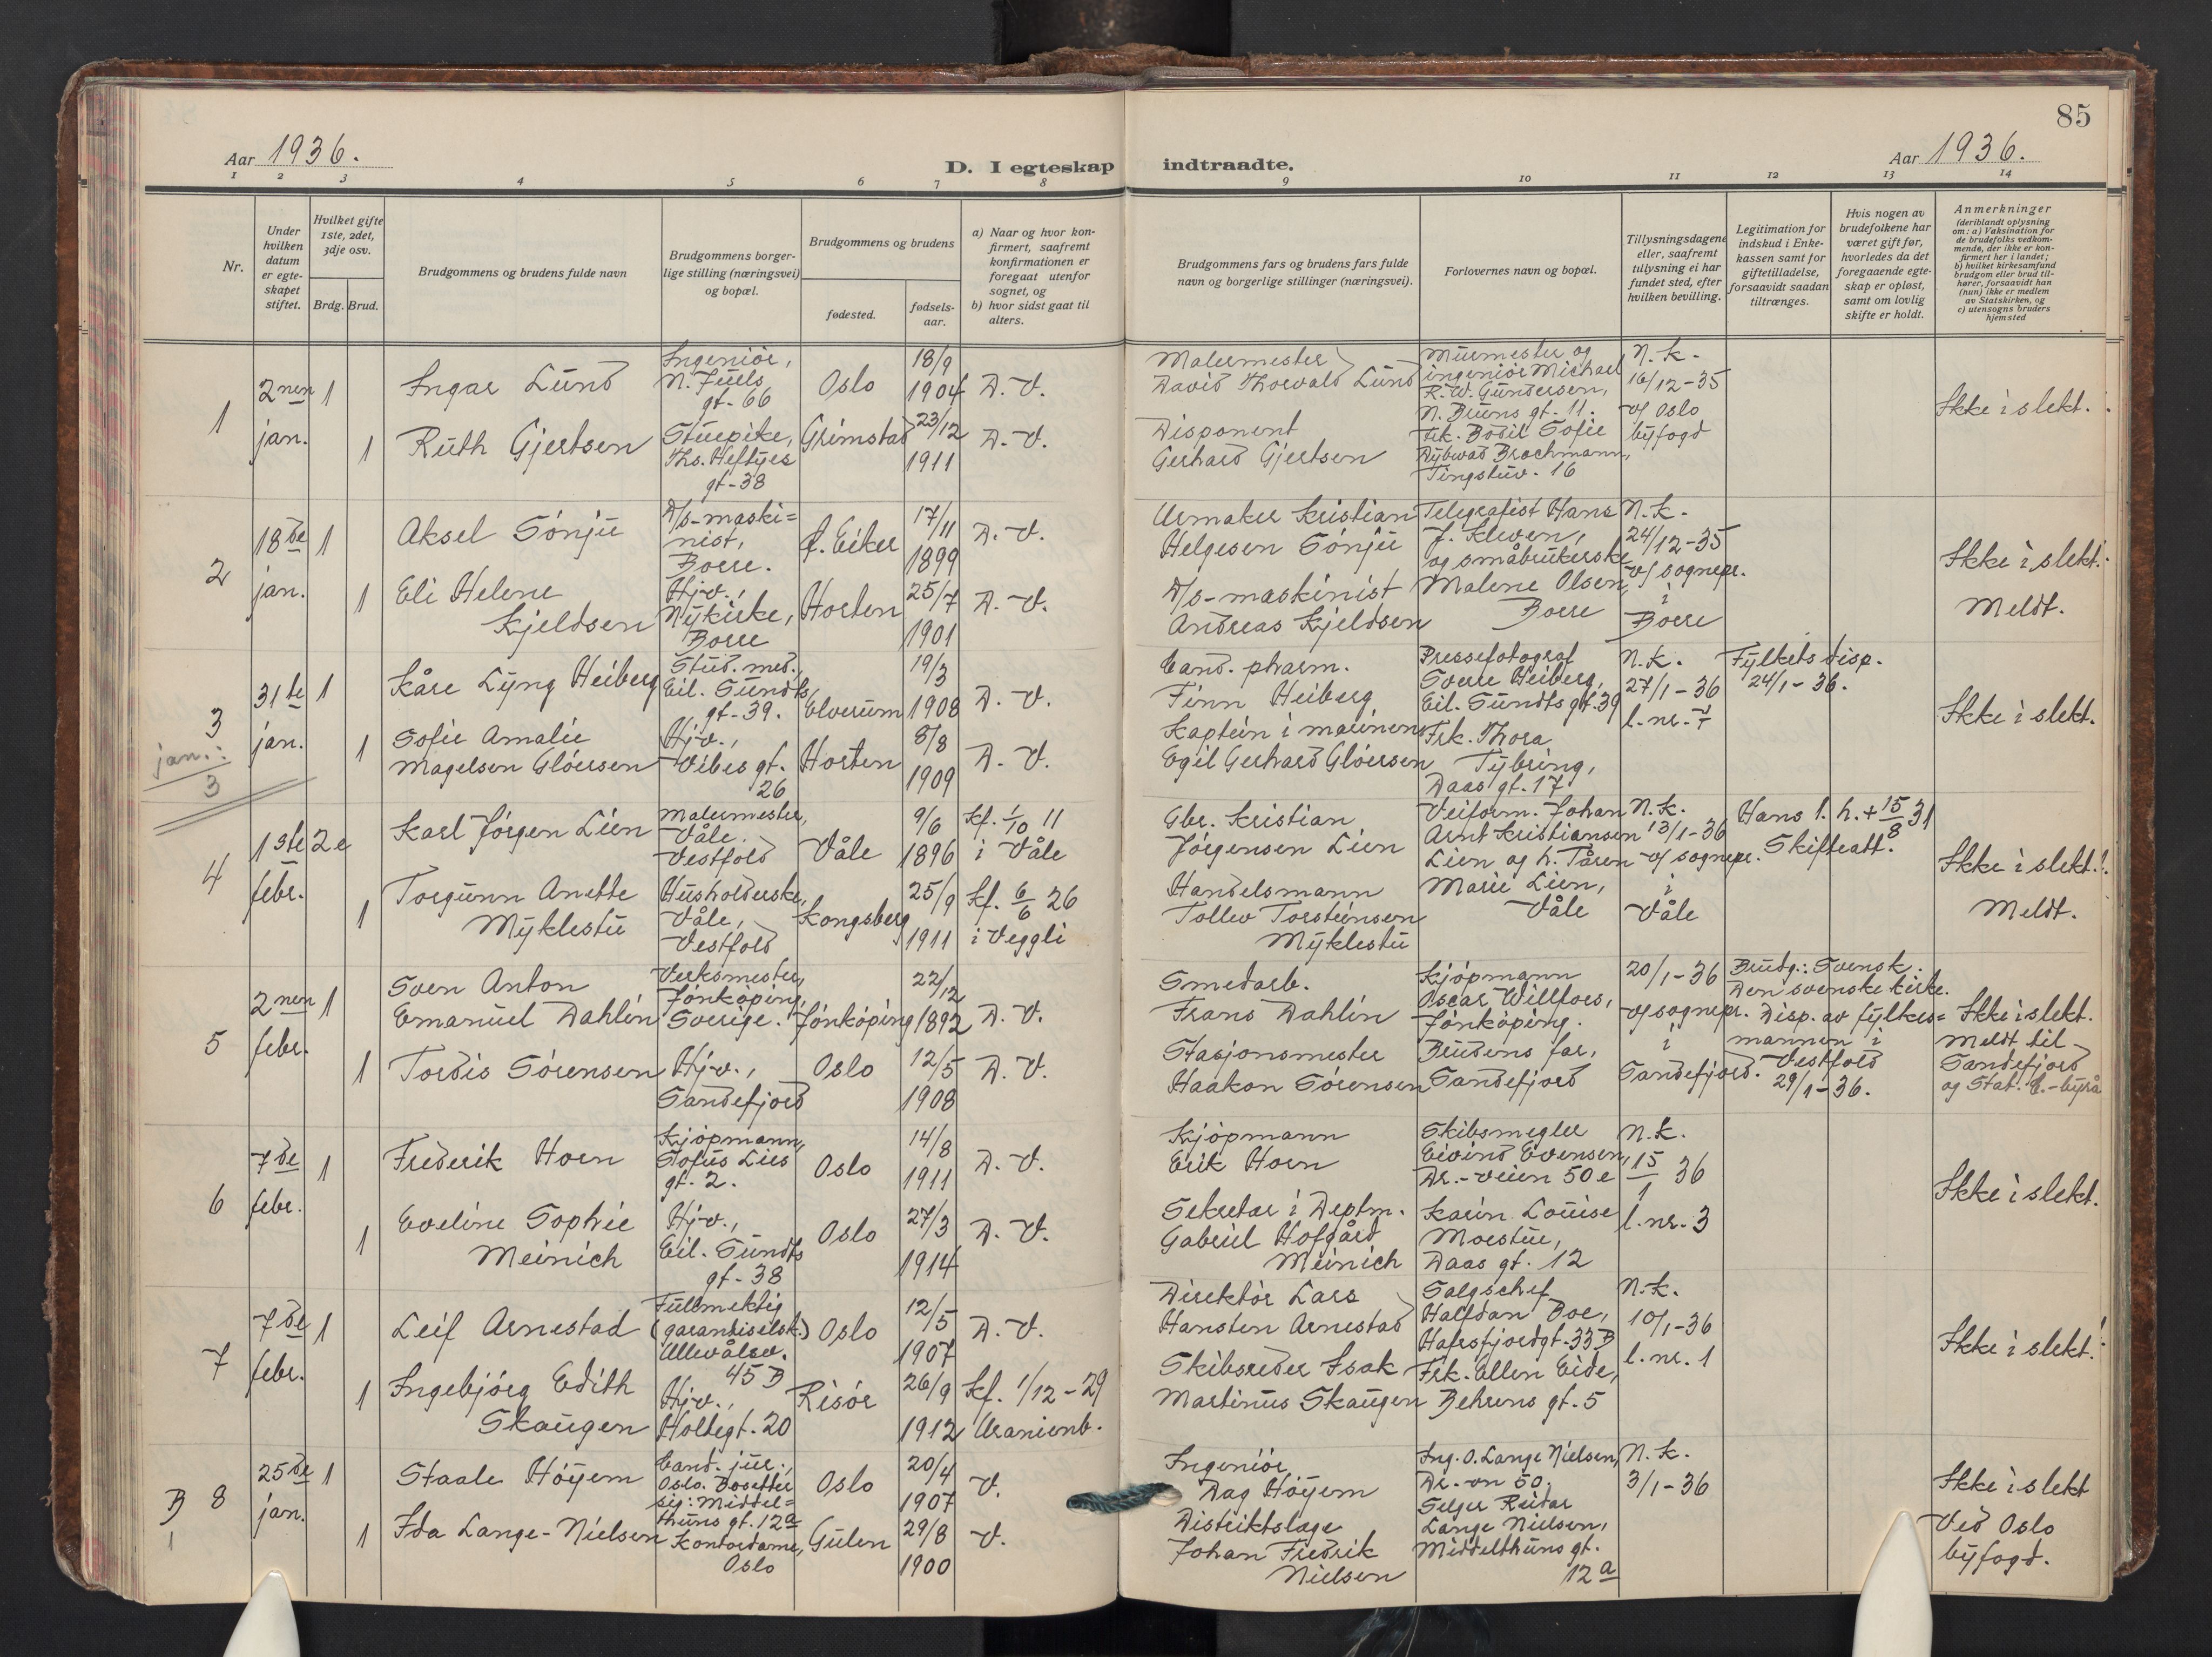 85
Aar 1936.
D. I egteskap indtraadte.
Aar 1936.
1 2 3 4 5 6 7 8 9 10 11 12 13 14
Nr.
Under
hvilken
datum
er egte-
skapet
stiftet.
Hvilket gifte
1ste, 2det,
3dje osv.
Brdg. Brud.
Brudgommens og brudens fulde navn
Brudgommens borger-
lige stilling (næringsvei)
og bopæl.
Brudgommens og brudens
fødested.
fødsels-
aar.
a) Naar og hvor kon-
firmert, saafremt
konfirmationen er
foregaat utenfor
sognet, og
b) hvor sidst gaat til
alters.
Brudgommens fars og brudens fars fulde
navn og borgerlige stillinger (næringsvei).
Forlovernes navn og bopæl.
Tillysningsdagene
eller, saafremt
tillysning ei har
fundet sted, efter
hvilken bevilling.
Legitimation for
indskud i Enke-
kassen samt for
giftetilladelse,
forsaavidt saadan
tiltrænges.
Hvis nogen av
brudefolkene har
været gift før,
hvorledes da det
foregaaende egte-
skap er opløst,
samt om lovlig
skifte er holdt.
Anmerkninger
(deriblandt oplysning
om: a) Vaksination for
de brudefolks vedkom-
mende, der ikke er kon-
firmert her i landet;
b) hvilket kirkesamfund
brudgom eller brud til-
hører, forsaavidt han
(hun) ikke er medlem
av Statskirken, og
c) utensogns bruders
hjemsted
1
2nen
jan.
1
Ingar Lund
Ingeniør,
N. Juels
gt. 66
Oslo
18/9
1904
D. V.
1
Ruth Gjertsen
Stuepike,
Ths. Heftyes
gt. 38
Grimstad
23/12
1911
D. V.
Malermester
David Thorvald Lund
Disponent
Gerhard Gjertsen
Murmester og
ingeniør Michael
R. W. Gundersen,
N. Bruns gt. 11.
Frk. Bodil Sofie
Dybwad Brochmann,
Tingstuv. 16
N. K.
16/12-35
v/ Oslo
byfogd
Ikke i slekt.
2
18de
jan.
1
Aksel Sönju
D/s-maski=
nist,
Borre.
f. Eiker
17/11
1899
D. V.
1
Eli Helene
Kjeldsen
Hjv.,
Nykirke,
Borre
Horten
25/7
1901
D. V.
Urmaker Kristian
Helgesen Sönju
D/s-maskinist
Andreas Kjeldsen
Telegrafist Hans
J. Kleven,
og småbrukerske
Malene Olsen,
Borre
N. K.
24/12-35
v/ sognepr.
i
Borre
Ikke i slekt.
Meldt.
3
31te
jan.
1
Kåre Lyng Heiberg
Stud. med.,
Eil. Sundts
gt. 39.
Elverum
19/3
1908
D. V.
1
Sofie Amalie
Magelsen Glöersen
Hjv.,
Vibes gt.
26
Horten
8/8
1909
D. V.
Cand. pharm.
Finn Heiberg
Kaptein i marinen
Egil Gerhard Glöersen
Pressefotograf
Sverre Heiberg,
Eil. Sundts gt. 39
Frk. Thora
Tybring,
Daas gt. 17
N. K.
27/1-36
l. nr. 7
Fylkets disp.
24/1-36.
Ikke i slekt.
jan.:
3
4
1ste
febr.
2e
Karl Jörgen Lien
Malermester,
Våle,
Vestfold
Våle
9/6
1896
Kf. 1/10 11
i Våle
1
Torgunn Anette
Myklestu
Husholderske,
Våle,
Vestfold
Kongsberg
25/9
1911
Kf. 6/6 26
i Veggli
Gbr. Kristian
Jörgensen Lien
Handelsmann
Tollev Torsteinsen
Myklestu
Veiform. Johan
Arnt Kristiansen
Lien og h. Tåren
Marie Lien,
Våle
N. K.
13/1-36
v/ sognepr.
i
Våle
Hans 1. h. + 15/8 31
Skifteatt.
Ikke i slekt.
Meldt.
5
2nen
febr.
1
Sven Anton
Emanuel Dahlin
Verksmester,
Jönköping,
Sverige.
Jönköping
22/12
1892
D. V.
1
Tordis Sörensen
Hjv.,
Sandefjord
Oslo
12/5
1908
D. V.
Smedarb.
Frans Dahlin
Stasjonsmester
Haakon Sörensen
Kjöpmann
Oscar Willfors,
Jönköping.
Brudens far,
Sandefjord
20/1-36
v/ sognepr.
i
Sandefjord.
Brudg.: Svensk.
Den svenske kirke.
Disp. av fylkes=
mannen i
Vestfold
29/1-36.
Ikke i slekt.
Meldt til
Sandefjord
og Stat. C.-byrå
6
7de
febr.
1
Frederik Horn
Kjöpmann,
Sofus Lies
gt. 2.
Oslo
14/8
1911
D. V.
1
Eveline Sophie
Meinich
Hjv.,
Eil. Sundts
gt. 38
Oslo
27/3
1914
D. V.
Kjöpmann
Erik Horn
Sekretær i Deptm.
Gabriel Hofgård
Meinich
Skibsmegler
Eivind Evensen,
Dr.-veien 50e
Karin Louise
Morstue,
Daas gt. 12
N. K.
15/1 36
l. nr. 3
Ikke i slekt.
7
7de
febr.
1
Leif Arnestad
Fullmektig
(garantiselsk.)
Ullevålsv.
45 B
Oslo
12/5
1907
D. V.
1
Ingebjörg Edith
Skaugen
Hjv.,
Holtegt. 20
Risör
26/9
1912
Kf. 1/12-29
Uranienb.
Direktör Lars
Hansten Arnestad
Skibsreder Isak
Martinus Skaugen
Salgschef
Halfdan Boe,
Hafrsfjordgt. 33B
Frk. Ellen Eide,
Behrens gt. 5
N. K.
10/1-36
l. nr. 1
Ikke i slekt.
B 8
1
25de
jan.
1
Staale Höyem
Cand. jur.,
Oslo. Bosetter
sig: Middel=
thuns gt. 12a
Oslo
20/4
1907
V.
1
Ida Lange-Nielsen
Kontordame,
Oslo
Gulen
29/8
1900
V.
Ingeniör
Dag Höyem
Distriktslæge
Johan Fredrik
Nielsen
Ing. O. Lange Nielsen,
Dr. vn 50.
Selger Reidar
Lange Nielsen,
Middelthuns gt.
12a
N. K.
3/1-36
Ikke i slekt
Ved Oslo
byfogd.